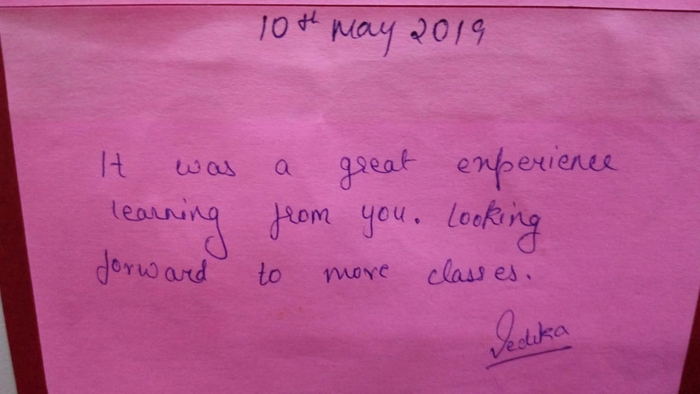 10th May 2019
It was a great experience
learning from you. Looking
forward to more classes.
Vedika